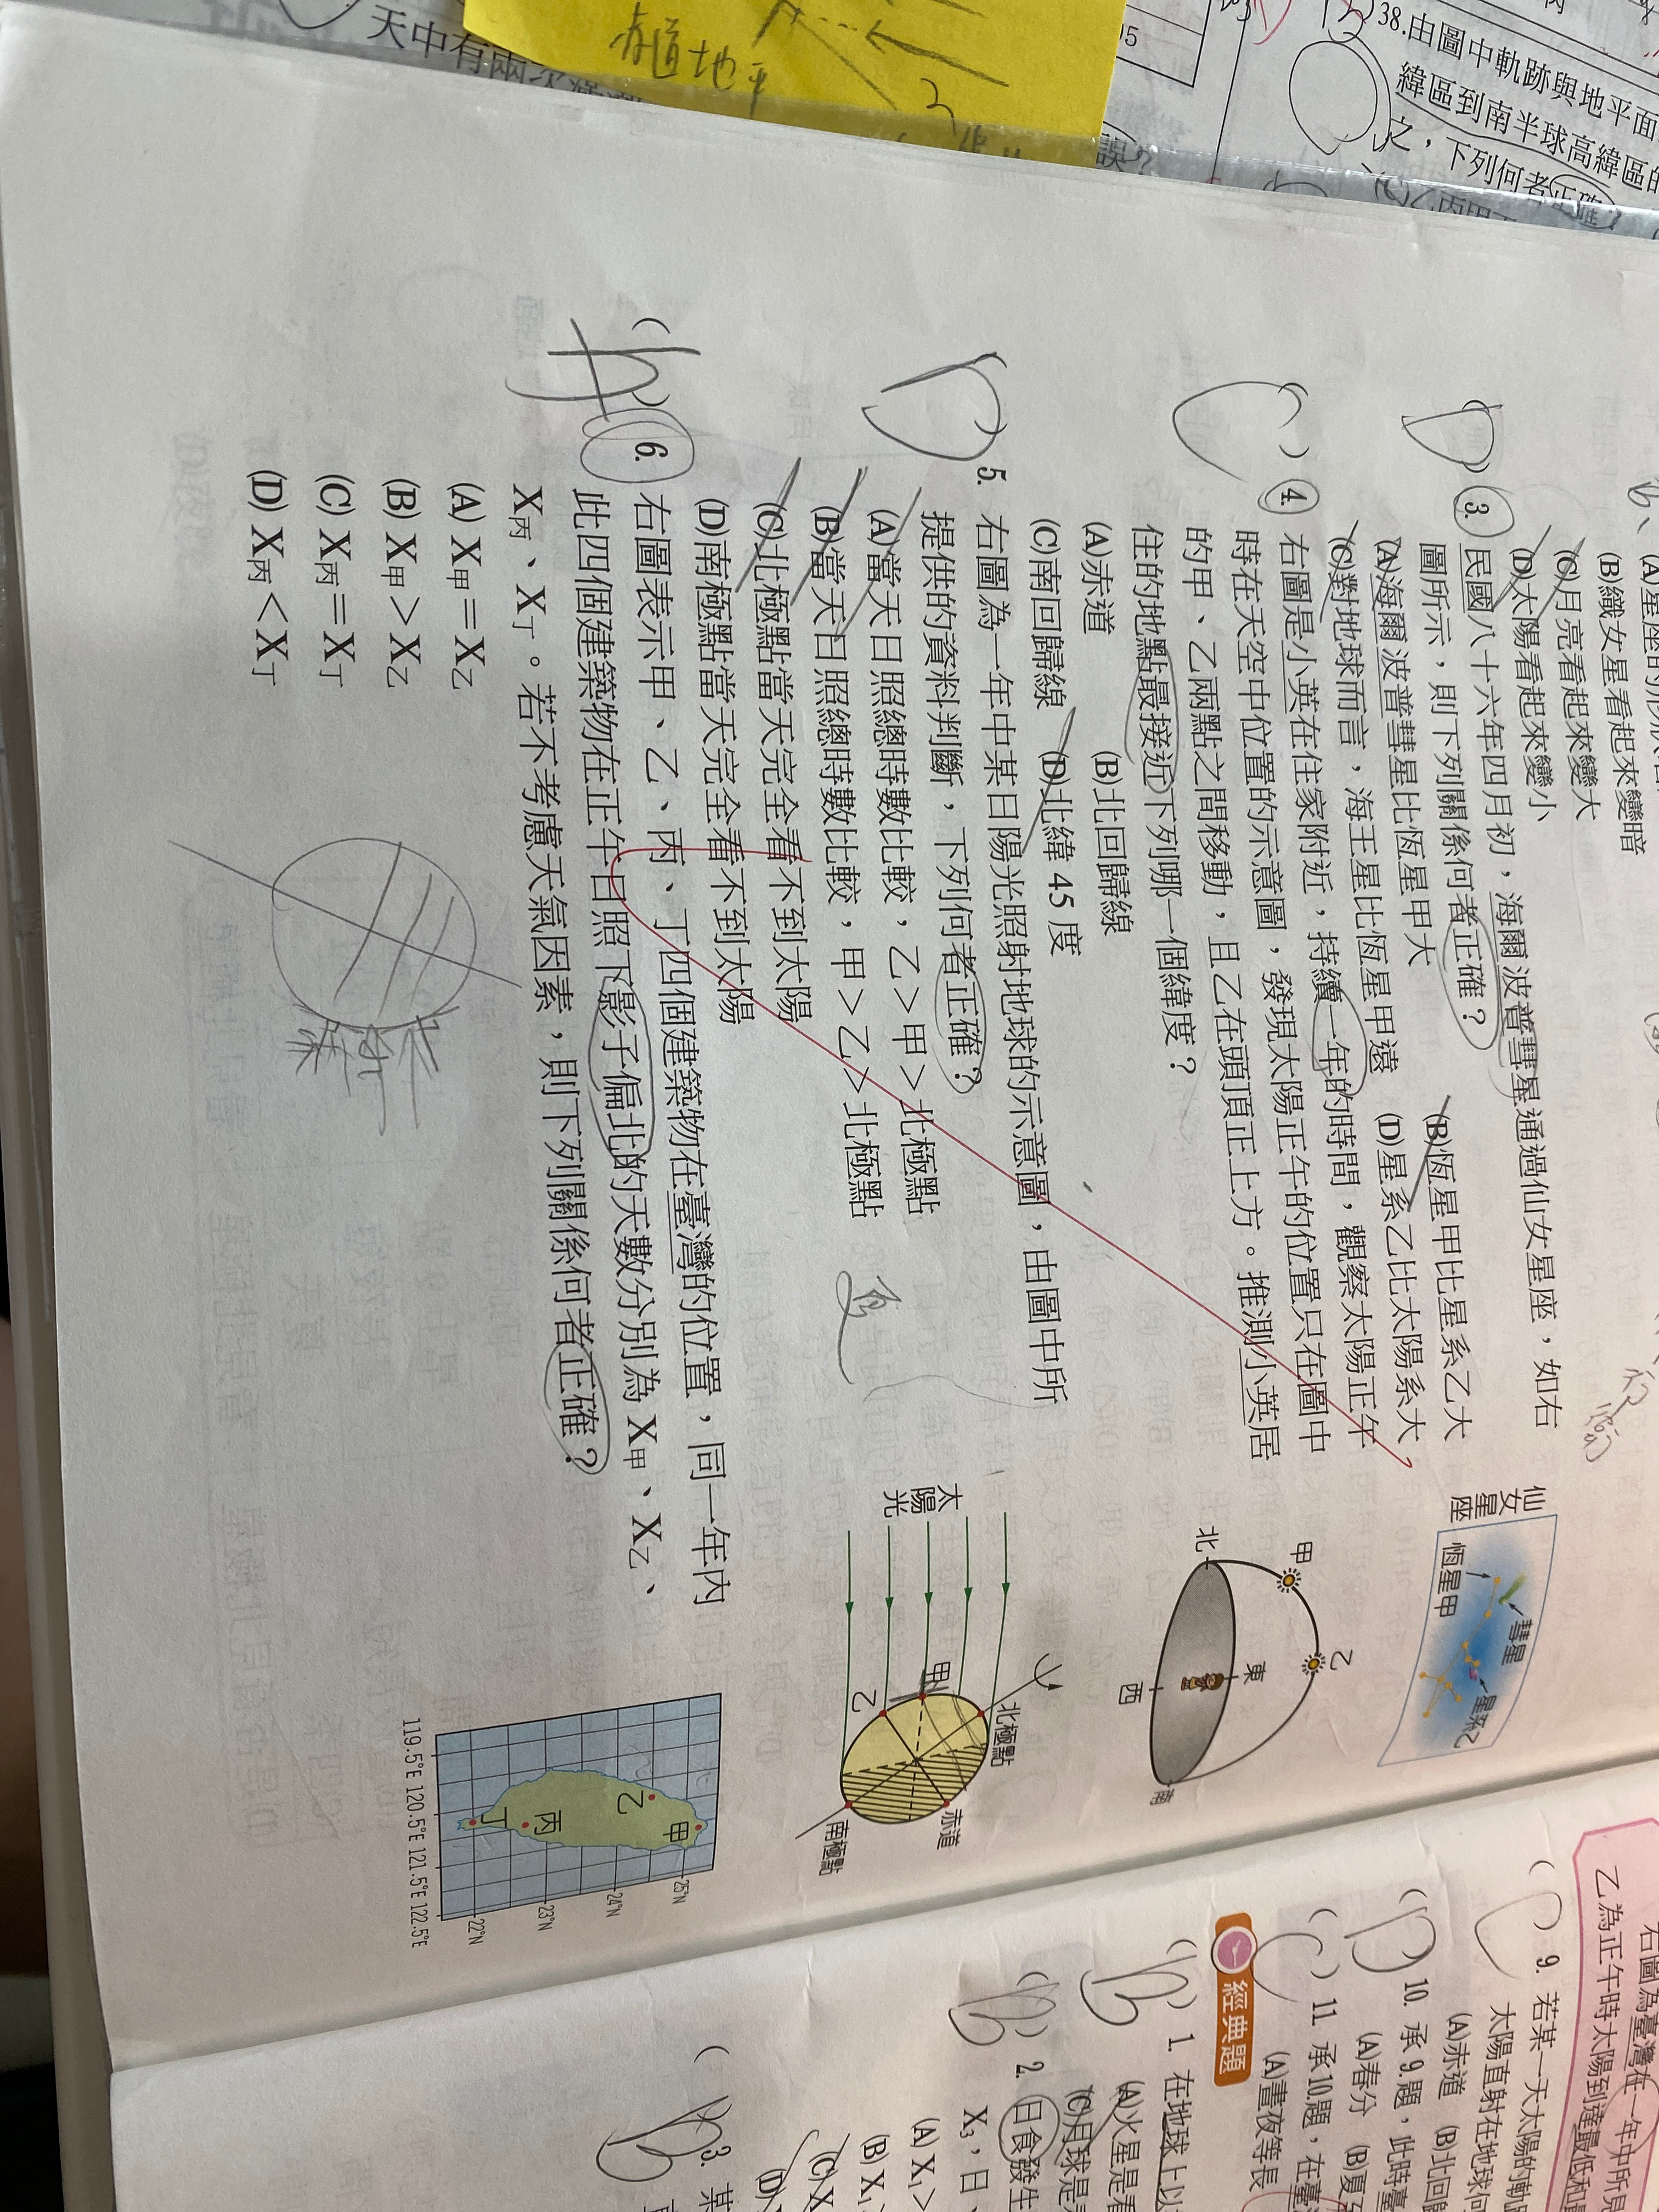 天中有兩次滿潮
赤道地平
95
38.由圖中軌跡與地平面
緯區到南半球高緯區的
之,下列何者正確?
誤?
(B)織女星看起來變暗
(C)月亮看起來變大
(D)太陽看起來變小
D
( )3. 民國八十六年四月初,海爾波普彗星通過仙女星座,如右
圖所示,則下列關係何者正確?
(A)海爾波普彗星比恆星甲遠
(B)恆星甲比星系乙大
(C)對地球而言,海王星比恆星甲大
(D)星系乙比太陽系大
仙女星座
恆星甲
彗星
星系乙
C
( )4. 右圖是小英在住家附近,持續一年的時間,觀察太陽正午
時在天空中位置的示意圖,發現太陽正午的位置只在圖中
的甲、乙兩點之間移動,且乙在頭頂正上方。推測小英居
住的地點最接近下列哪一個緯度?
(A)赤道
(B)北回歸線
(C)南回歸線
(D)北緯 45 度
甲
乙
北
東
西
南
D
( )5. 右圖為一年中某日陽光照射地球的示意圖,由圖中所
提供的資料判斷,下列何者正確?
(A)當天日照總時數比較,乙>甲>北極點
(B)當天日照總時數比較,甲>乙>北極點
(C)北極點當天完全看不到太陽
(D)南極點當天完全看不到太陽
夏
太陽光
甲
乙
北極點
赤道
南極點
( )6. 右圖表示甲、乙、丙、丁四個建築物在臺灣的位置,同一年內
此四個建築物在正午日照下影子偏北的天數分別為 X甲、X乙、
X丙、X丁。若不考慮天氣因素,則下列關係何者正確?
(A) X甲=X乙
(B) X甲>X乙
(C) X丙=X丁
(D) X丙<X丁
甲
乙
丙
丁
25°N
24°N
23°N
22°N
119.5°E 120.5°E 121.5°E 122.5°E
右圖為臺灣在一年中所見
乙為正午時太陽到達最低和
( )9. 若某一天太陽的軌
太陽直射在地球何
(A)赤道 (B)北回歸
D
( )10. 承 9.題,此時臺
(A)春分 (B)夏
C
( )11. 承10.題,在臺
(A)晝夜等長
經典題
B
( )1. 在地球上以
(A)火星是看
(C)月球是
B
( )2. 日食發生
X3,日、
(A) X1>
(B) X1
(C) X
(D)
B
( )3. 某